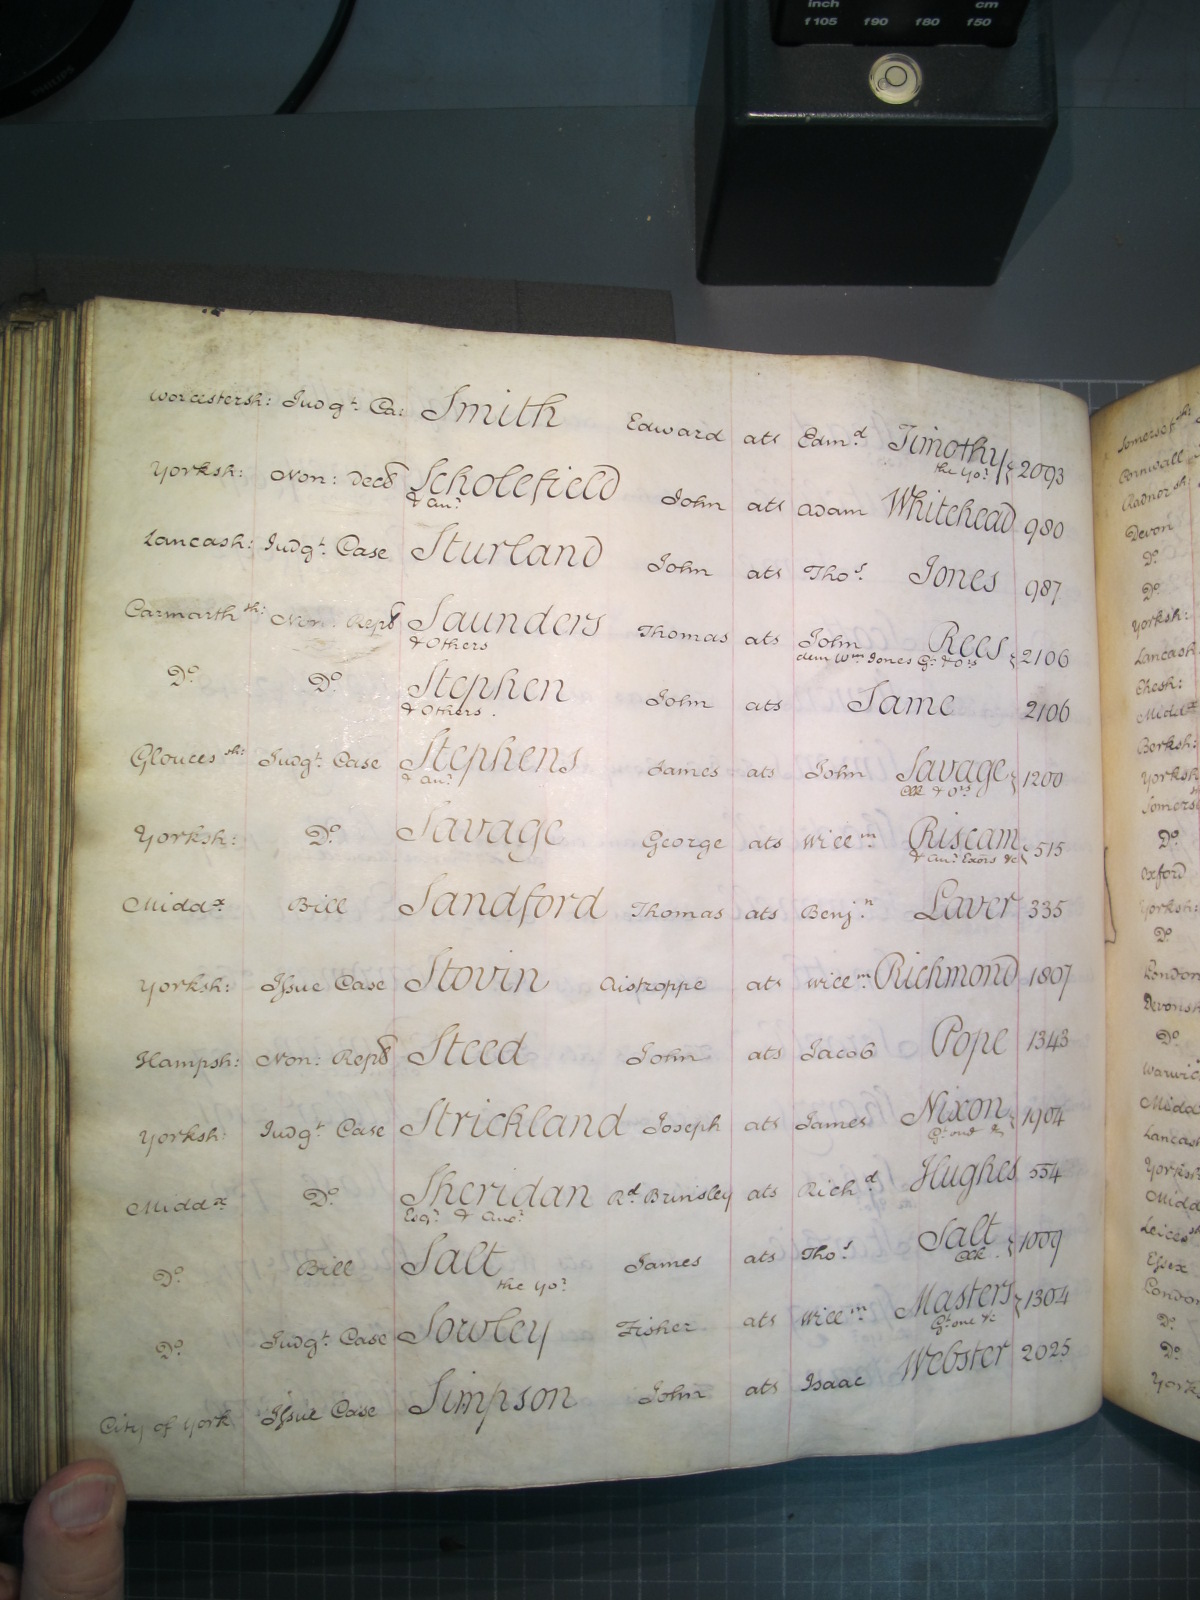 inch cm
f105 f90 f80 f50
PHILIPS
Worcestersh: Judgt. Ca: Smith Edward ats Edmd. Timothy 2093
the yor.
Yorksh: Non: Scholefield John ats Adam Whitehead 980
& anr.
Lancash: Judgt. Case Sturland John ats Thos. Jones 987
Carmarthsh: Non: Saunders Thomas ats John Rees 2106
& Others dem Wm. Jones Gt. & Ors
Do. Do. Stephen John ats Same 2106
& Others.
Gloucessh: Judgt. Case Stephens James ats John Savage 1200
& anr. Clk & Ors.
Yorksh: Do. Savage George ats Willm. 515
& anr. Exors &c
Middx. Bill Sandford Thomas ats Benjn. Laver 335
Yorksh: Issue Case Stovin Aistroppe ats Willm. Richmond 1807
Hampsh: Non: Steed John ats Jacob Pope 1343
Yorksh: Judgt. Case Strickland Joseph ats James Nixon 1904
Gt. one &c
Middx. Do. Sheridan Rd. Brinsley ats Richd. Hughes 554
Esqr. & Anor.
Do. Bill Salt James ats Thos. Salt 1009
the yor. Clk.
Do. Judgt. Case Sowley Fisher ats Willm. Masters 1304
Gt. one &c
City of York Issue Case Simpson John ats Isaac Webster 2025
Somersetsh:
Cornwall
Radnorsh:
Devon
Do.
Do.
Yorksh:
Lancash
Chesh:
Middx
Berksh:
Yorksh
Somers
Do.
Oxford
Yorksh:
Do.
London
Devonsh
Do.
Warwic
Midd
Lancash
Yorksh
Midd
Leicessh
Essex
London
Do.
Do.
York